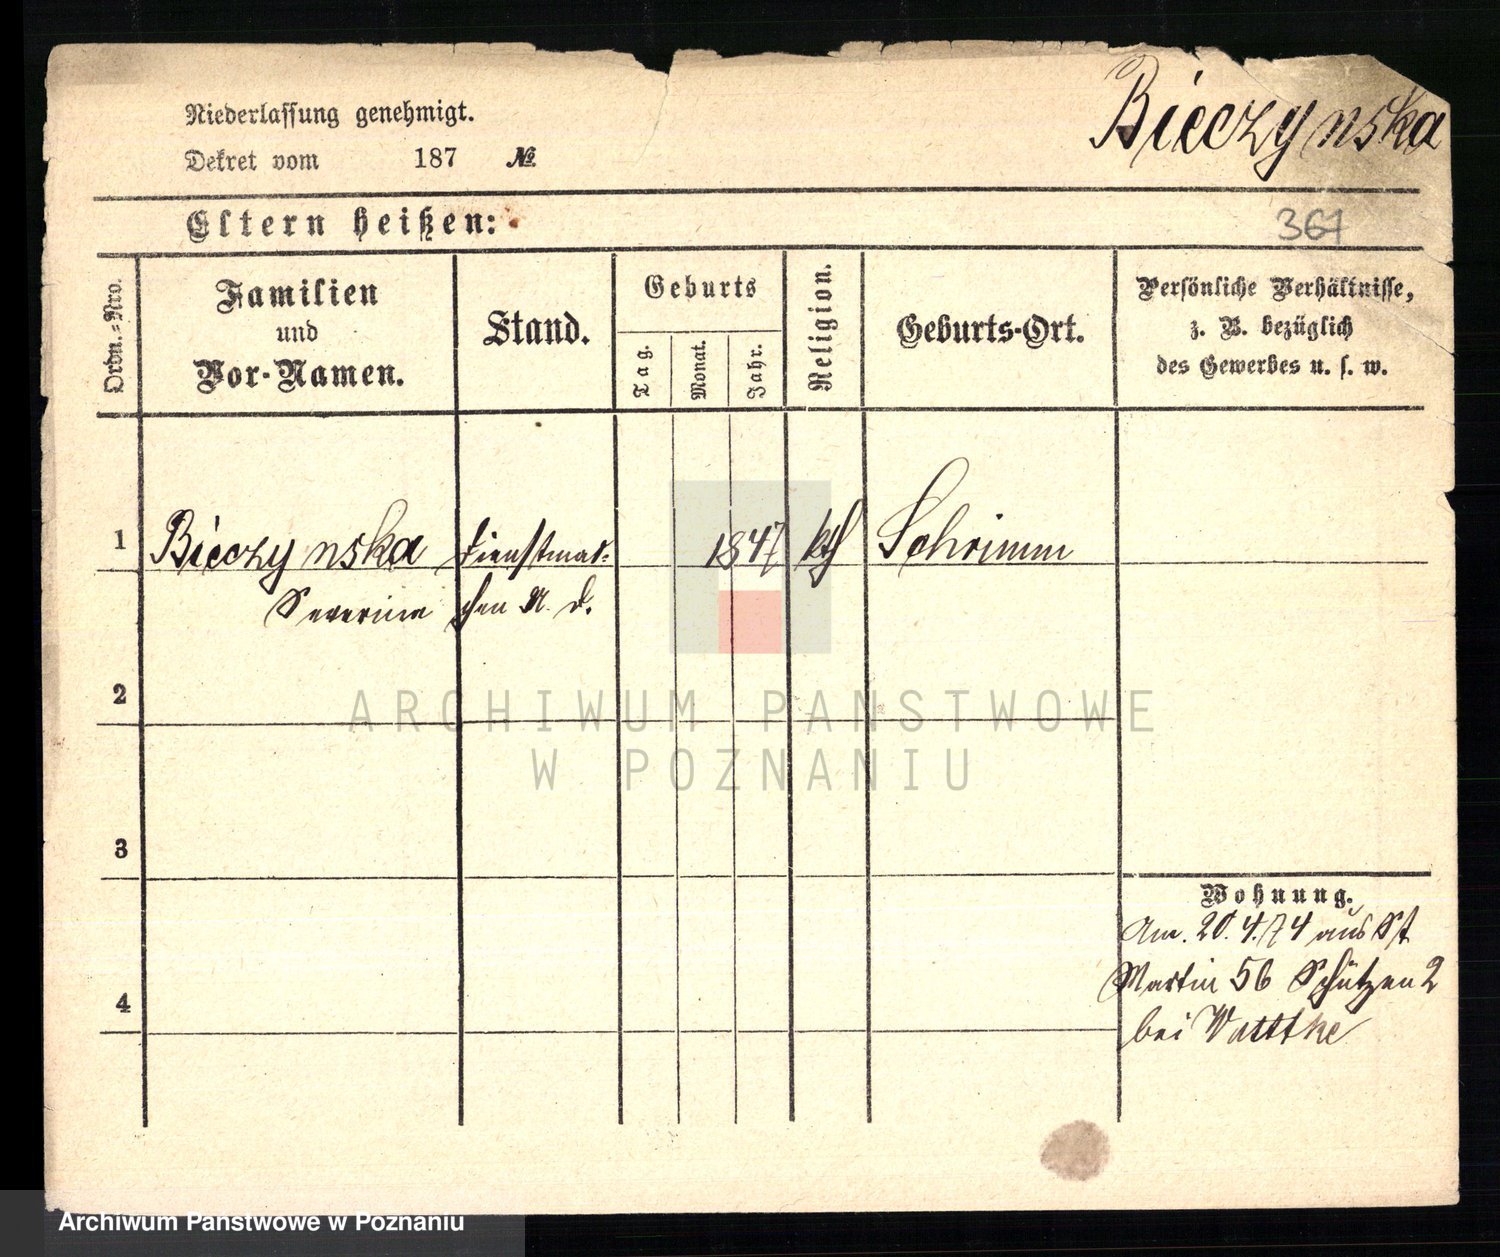 Bieczynska
Niederlassung genehmigt.
Dekret vom 187 №
Eltern heißen:
367
Ordn.-Nro.
Familien
und
Vor-Namen.
Stand.
Geburts
Tag.
Monat.
Jahr.
Religion.
Geburts-Ort.
Persönliche Verhältnisse,
z. B. bezüglich
des Gewerbes u. s. w.
1 Bieczynska Dienstmäd- 1847 kth Schrimm
Severine chen u. d.
2
ARCHIWUM PAŃSTWOWE
W POZNANIU
3
Wohnung.
Am. 20.4.74 aus St
Martin 56 Schützen 2
4
bei Wattke
Archiwum Państwowe w Poznaniu